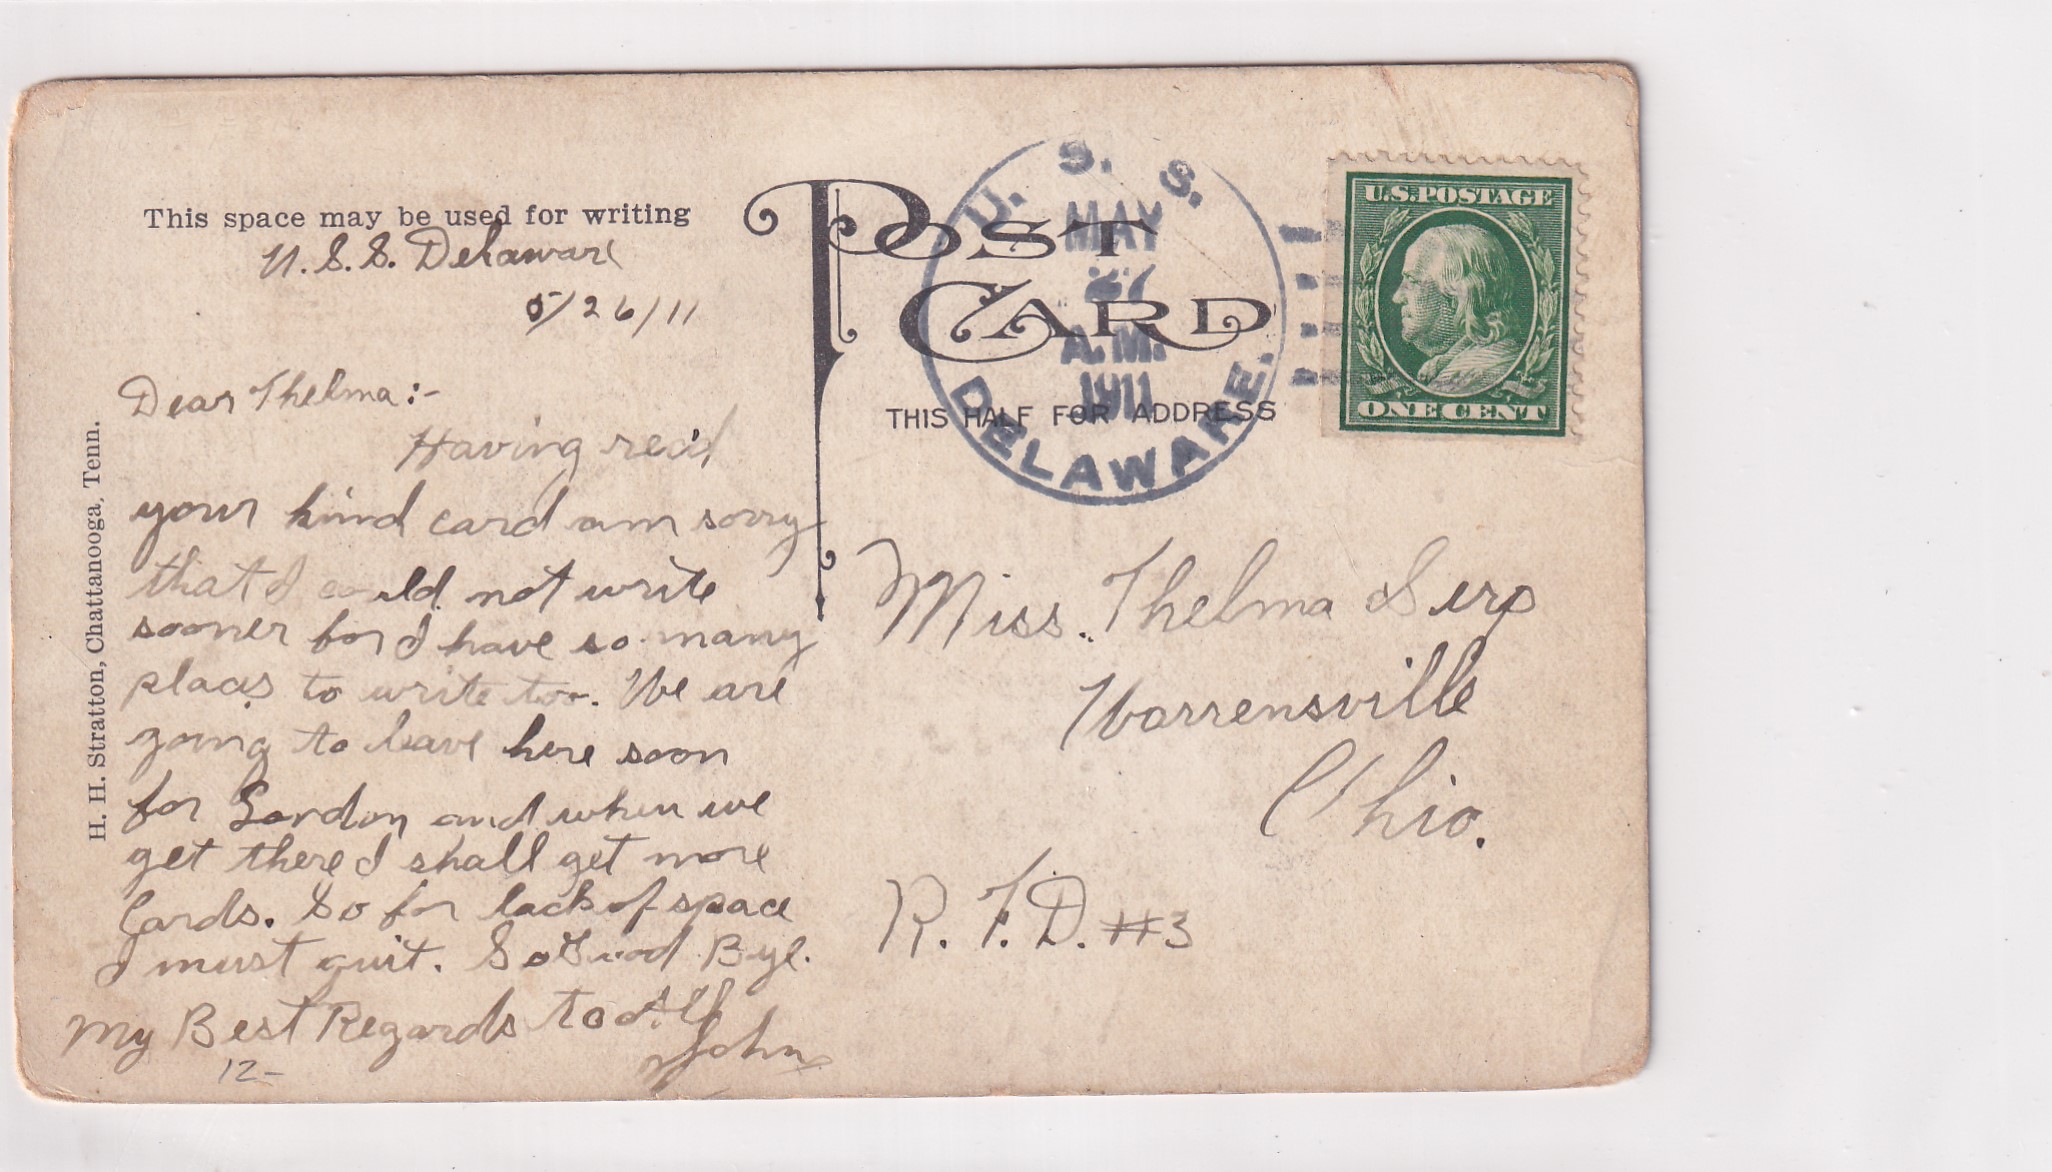 This space may be used for writing
U.S.S. Delaware
5/26/11
Dear Thelma:-
Having rec'd
your kind card am sorry
that I could not write
sooner for I have so many
places to write too. We are
going to leave here soon
for London and when we
get there I shall get more
Cards. So for lack of space
I must quit. So Good Bye.
My Best Regards to All
John
12-
H. H. Stratton, Chattanooga, Tenn.
POST CARD
THIS HALF FOR ADDRESS
U. S. S.
MAY
27
A.M.
1911
DELAWARE.
U.S. POSTAGE
ONE CENT
Miss. Thelma
Warrensville
Ohio.
R.F.D. #3